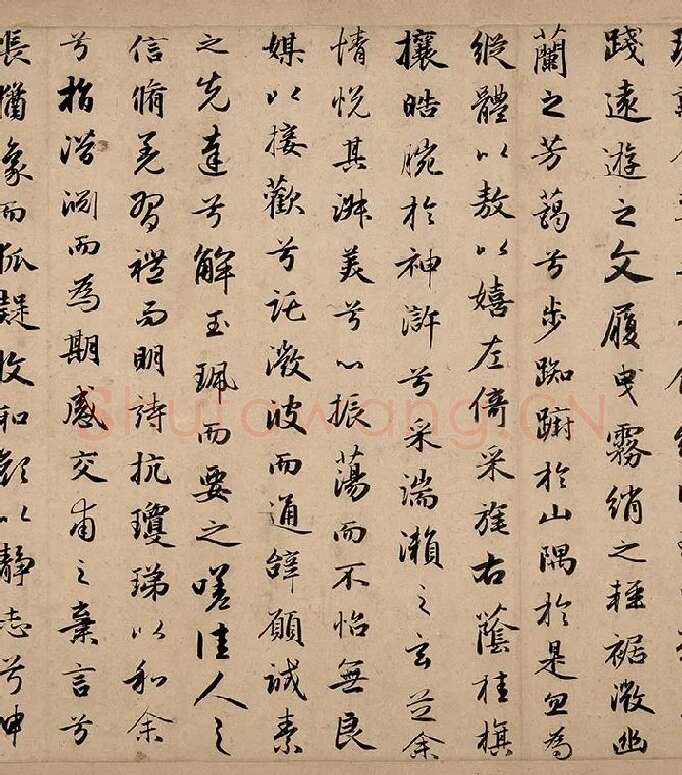 踐遠遊之文履曳霧綃之輕裾微幽
蘭之芳藹兮步踟躕於山隅於是忽為
縱體以敖以嬉左倚采旄右蔭桂旗
攘皓腕於神滸兮采湍瀨之玄芝余
情悅其淑美兮心振蕩而不怡無良
媒以接歡兮託微波而通辭願誠素
之先達兮解玉珮而要之嗟佳人之
信脩羌習禮而明詩抗瓊珶以和余
兮指潛淵而為期感交甫之棄言兮
悵猶豫而狐疑收和顏以靜志兮申
Shufawang.CN